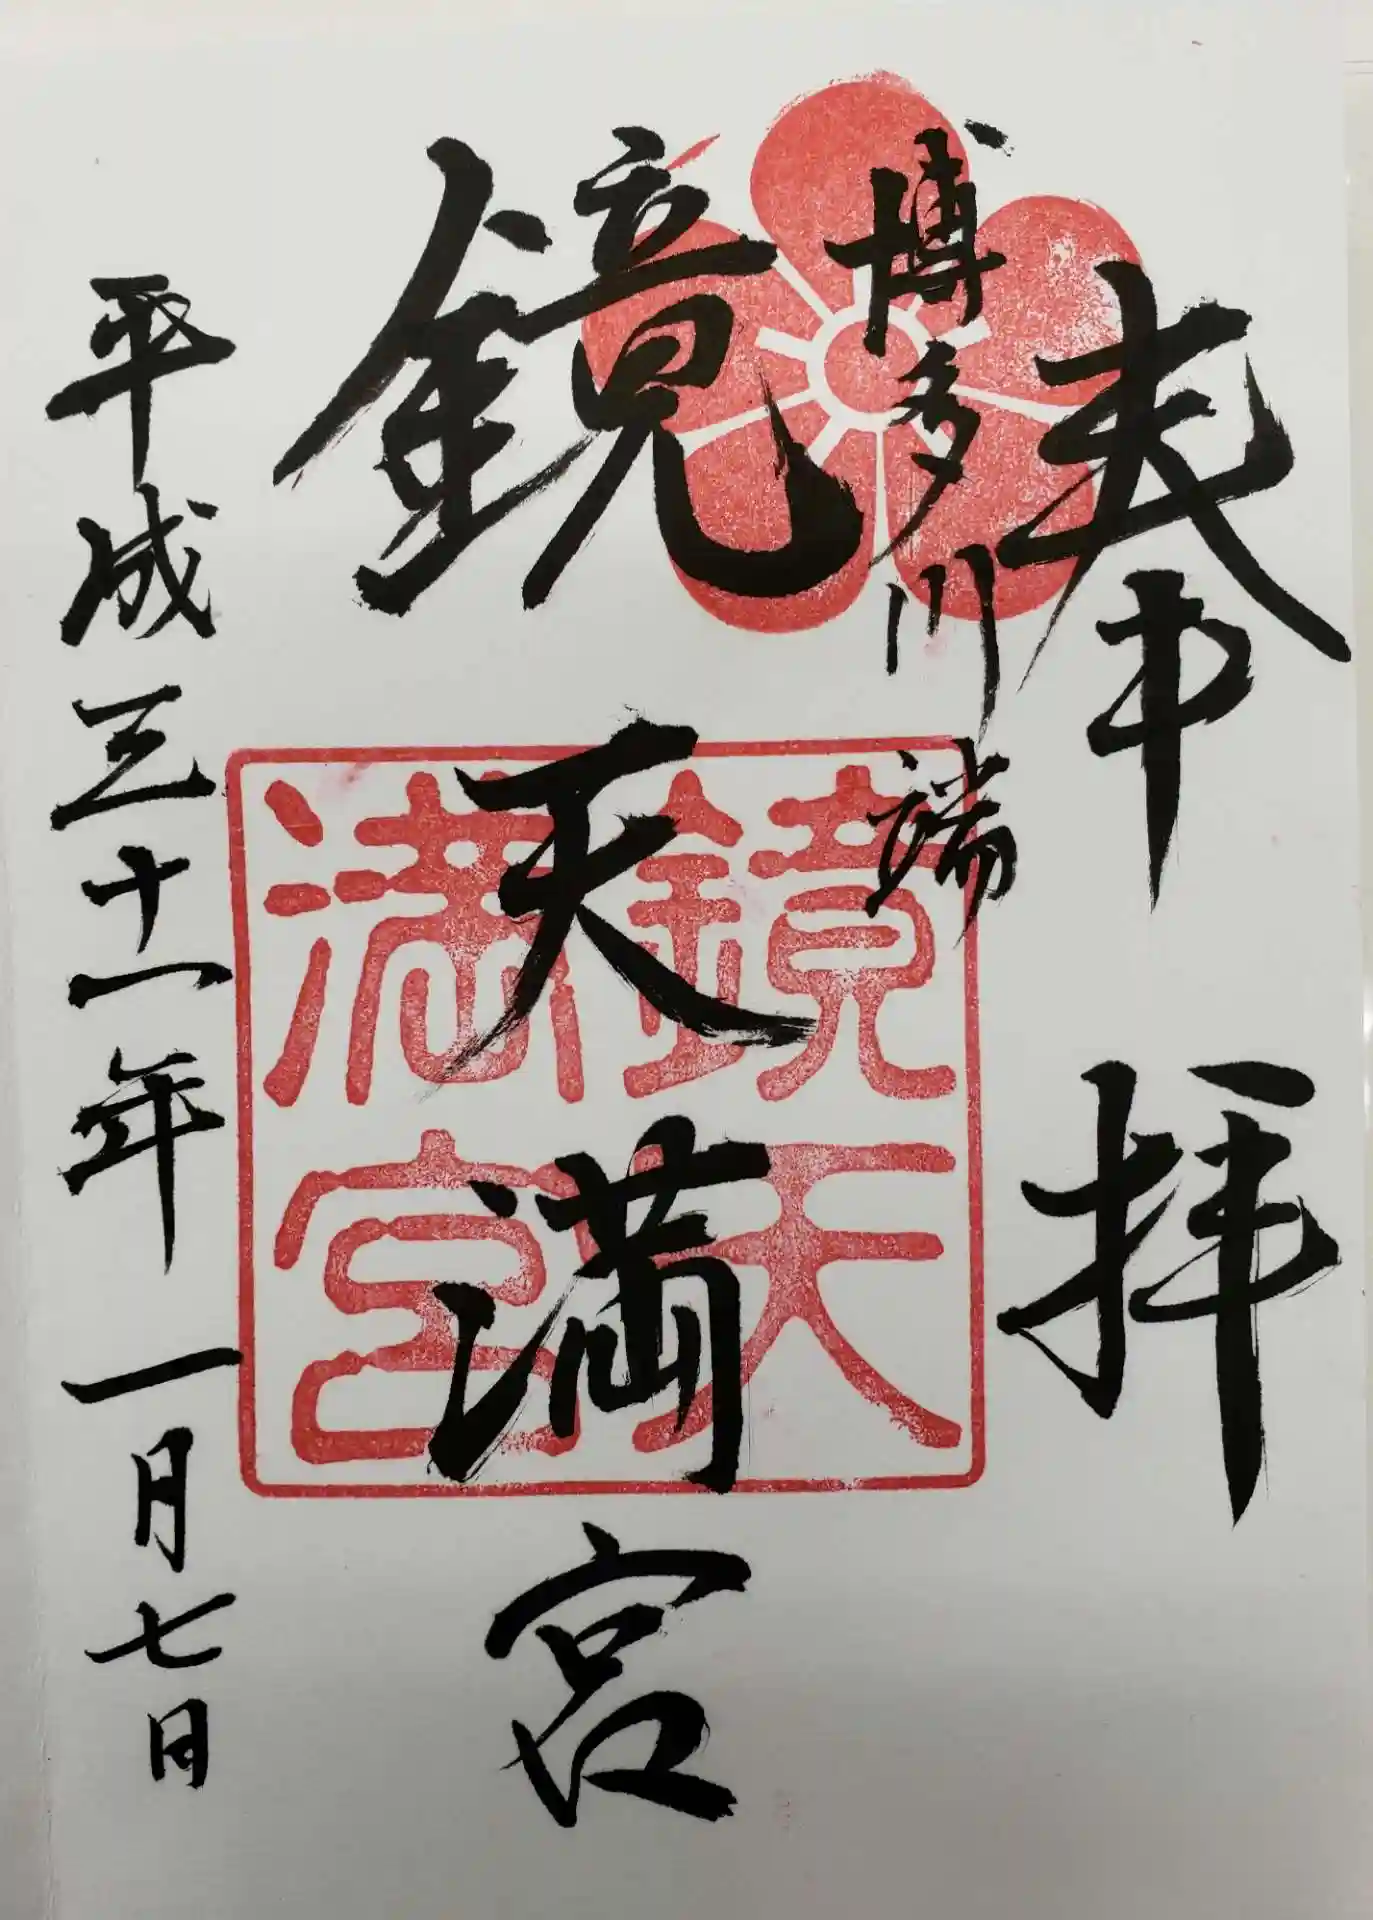 奉拝
博多川端
鏡天満宮
鏡天
満宮
平成三十一年一月七日